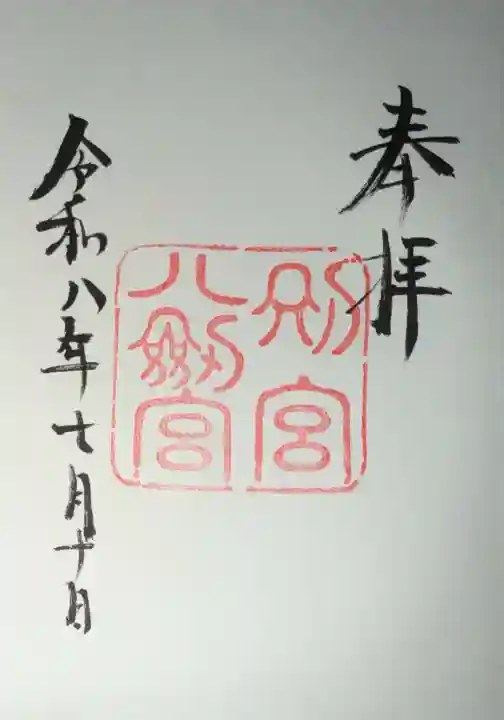 奉拝
別宮
八剱宮
令和八年七月十日